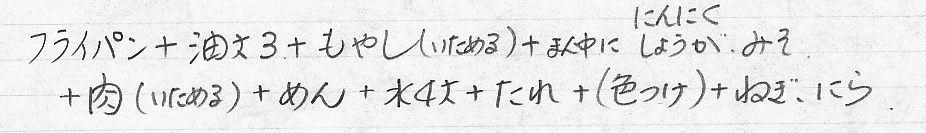 にんにく
フライパン+油大3+もやし(いためる)+まん中に しょうが、みそ
+肉(いためる)+めん+水4大+たれ+(色つけ)+ねぎ、にら